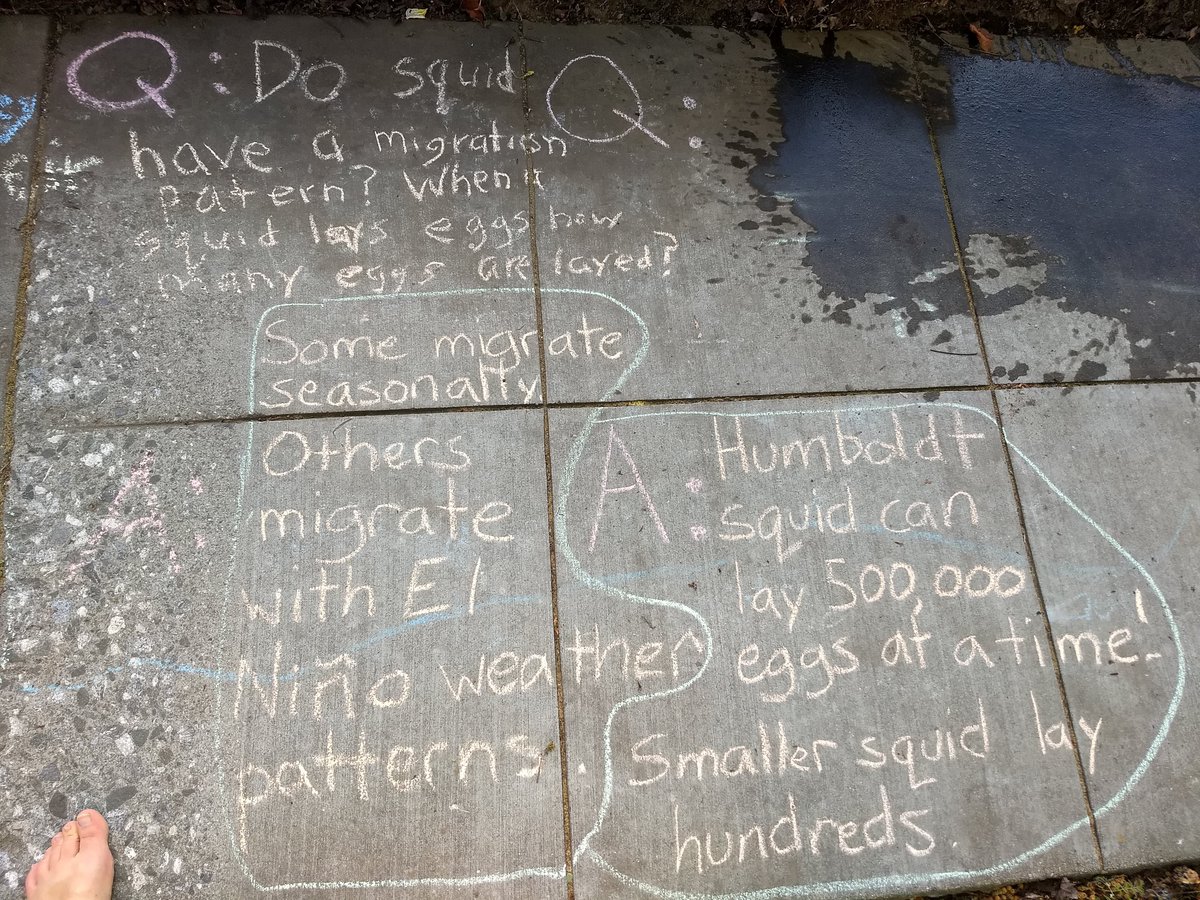 Q: Do squid
have a migration
pattern? When a
squid lays eggs how
many eggs are layed?
Q:
A:
Some migrate
seasonally
Others
migrate
with El
Niño weather
patterns.
A: Humboldt
squid can
lay 500,000
eggs at a time!
Smaller squid lay
hundreds.